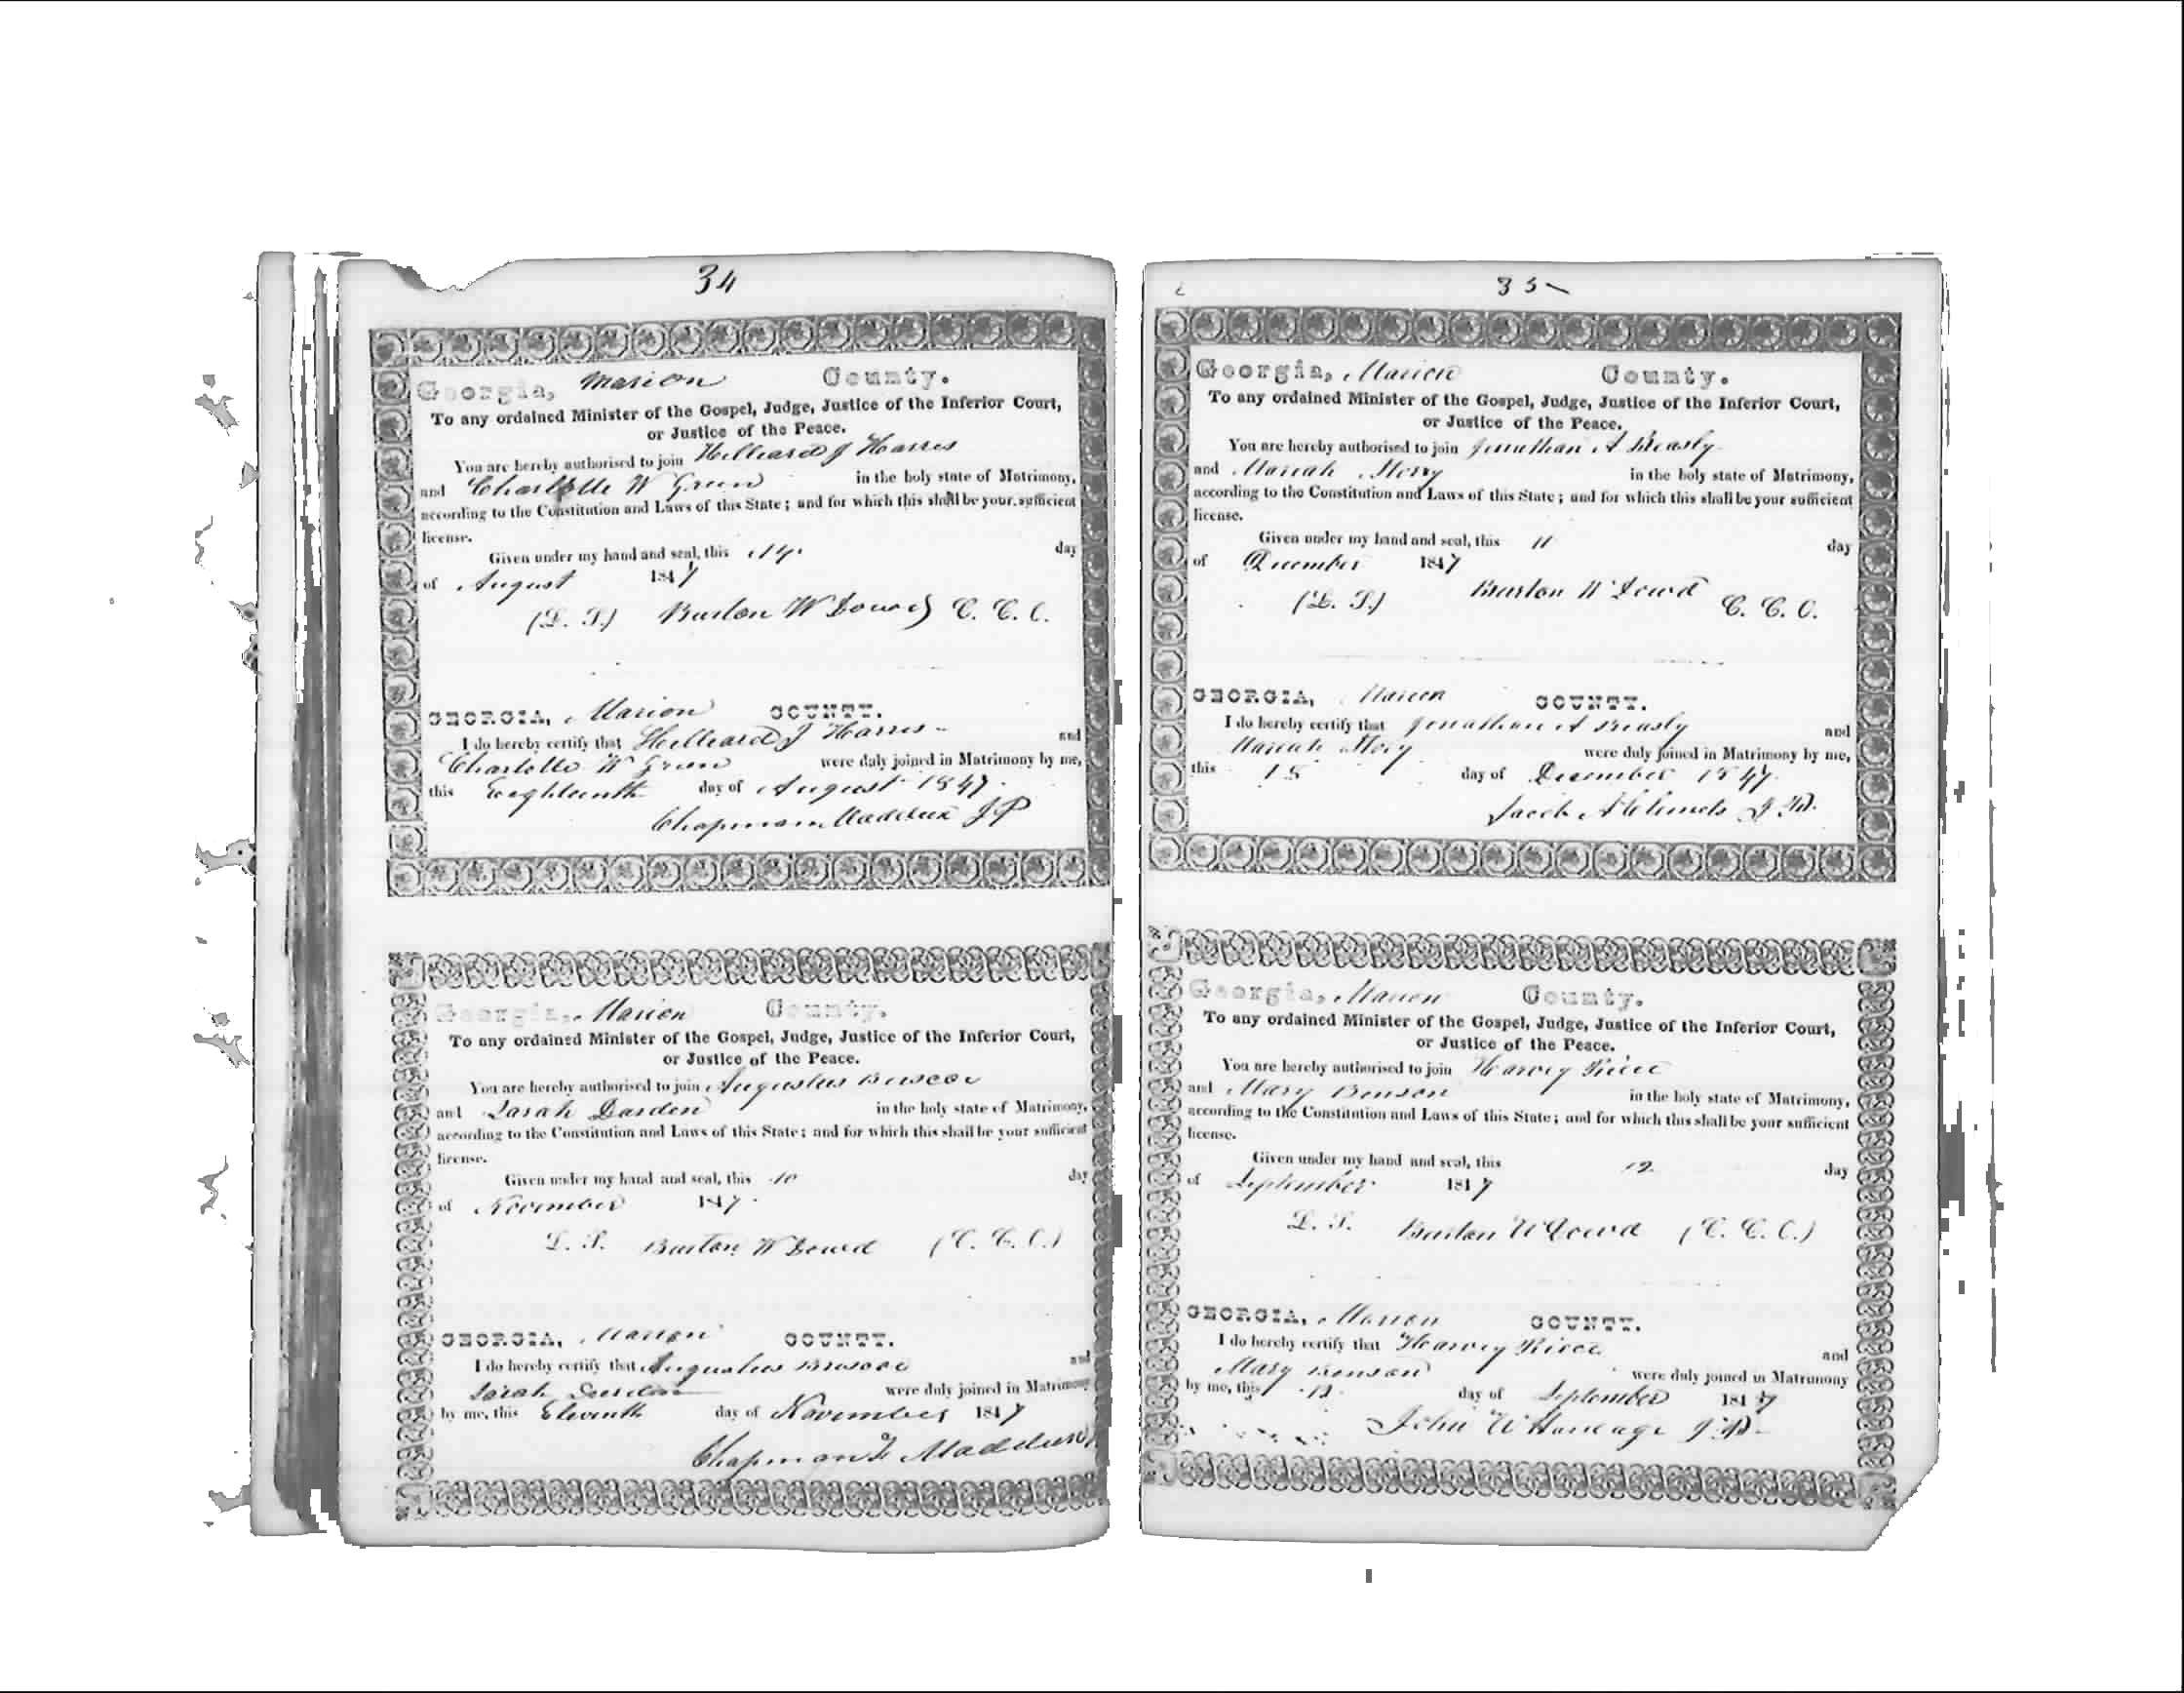 34
Georgia, Marion County.
To any ordained Minister of the Gospel, Judge, Justice of the Inferior Court,
or Justice of the Peace.
You are hereby authorised to join Hilliard J Harris
and Charlotte W Green in the holy state of Matrimony,
according to the Constitution and Laws of this State; and for which this shall be your sufficient
license.
Given under my hand and seal, this 14 day
of August 1847
(L. S.) Burton W Dowd C. C. O.
GEORGIA, Marion COUNTY.
I do hereby certify that Hilliard J Harris and
Charlotte W Green were duly joined in Matrimony by me,
this Eighteenth day of August 1847.
Chapman Maddux J P
Georgia, Marion County.
To any ordained Minister of the Gospel, Judge, Justice of the Inferior Court,
or Justice of the Peace.
You are hereby authorised to join Augustus Briscoe
and Sarah Darden in the holy state of Matrimony,
according to the Constitution and Laws of this State; and for which this shall be your sufficient
license.
Given under my hand and seal, this 10 day
of November 1847.
L. S. Burton W Dowd (C. C. O.)
GEORGIA, Marion COUNTY.
I do hereby certify that Augustus Briscoe and
Sarah Darden were duly joined in Matrimony
by me, this Eleventh day of November 1847
Chapman Maddux
35
Georgia, Marion County.
To any ordained Minister of the Gospel, Judge, Justice of the Inferior Court,
or Justice of the Peace.
You are hereby authorised to join Jonathan A Beasly
and Mariah Story in the holy state of Matrimony,
according to the Constitution and Laws of this State; and for which this shall be your sufficient
license.
Given under my hand and seal, this 11 day
of December 1847
(L. S.) Burton W Dowd C. C. O.
GEORGIA, Marion COUNTY.
I do hereby certify that Jonathan A Beasly and
Mariah Story were duly joined in Matrimony by me,
this 15 day of December 1847.
Jacob J. P.
Georgia, Marion County.
To any ordained Minister of the Gospel, Judge, Justice of the Inferior Court,
or Justice of the Peace.
You are hereby authorised to join Harvey
and Mary Benson in the holy state of Matrimony,
according to the Constitution and Laws of this State; and for which this shall be your sufficient
license.
Given under my hand and seal, this 12 day
of September 1847
L. S. Burton W Dowd (C. C. O.)
GEORGIA, Marion COUNTY.
I do hereby certify that Harvey and
Mary Benson were duly joined in Matrimony
by me, this 12 day of September 1847
John W J. P.